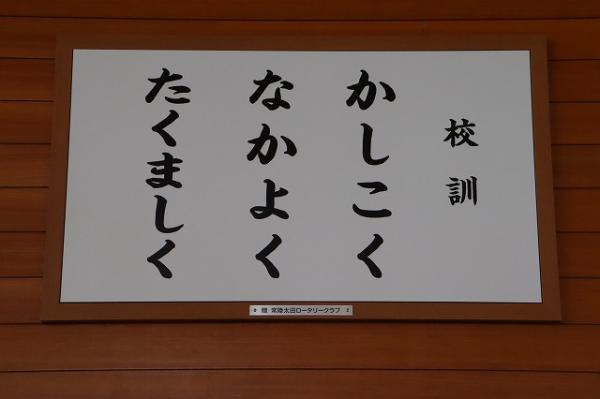 校訓
かしこく
なかよく
たくましく
贈 常陸太田ロータリークラブ